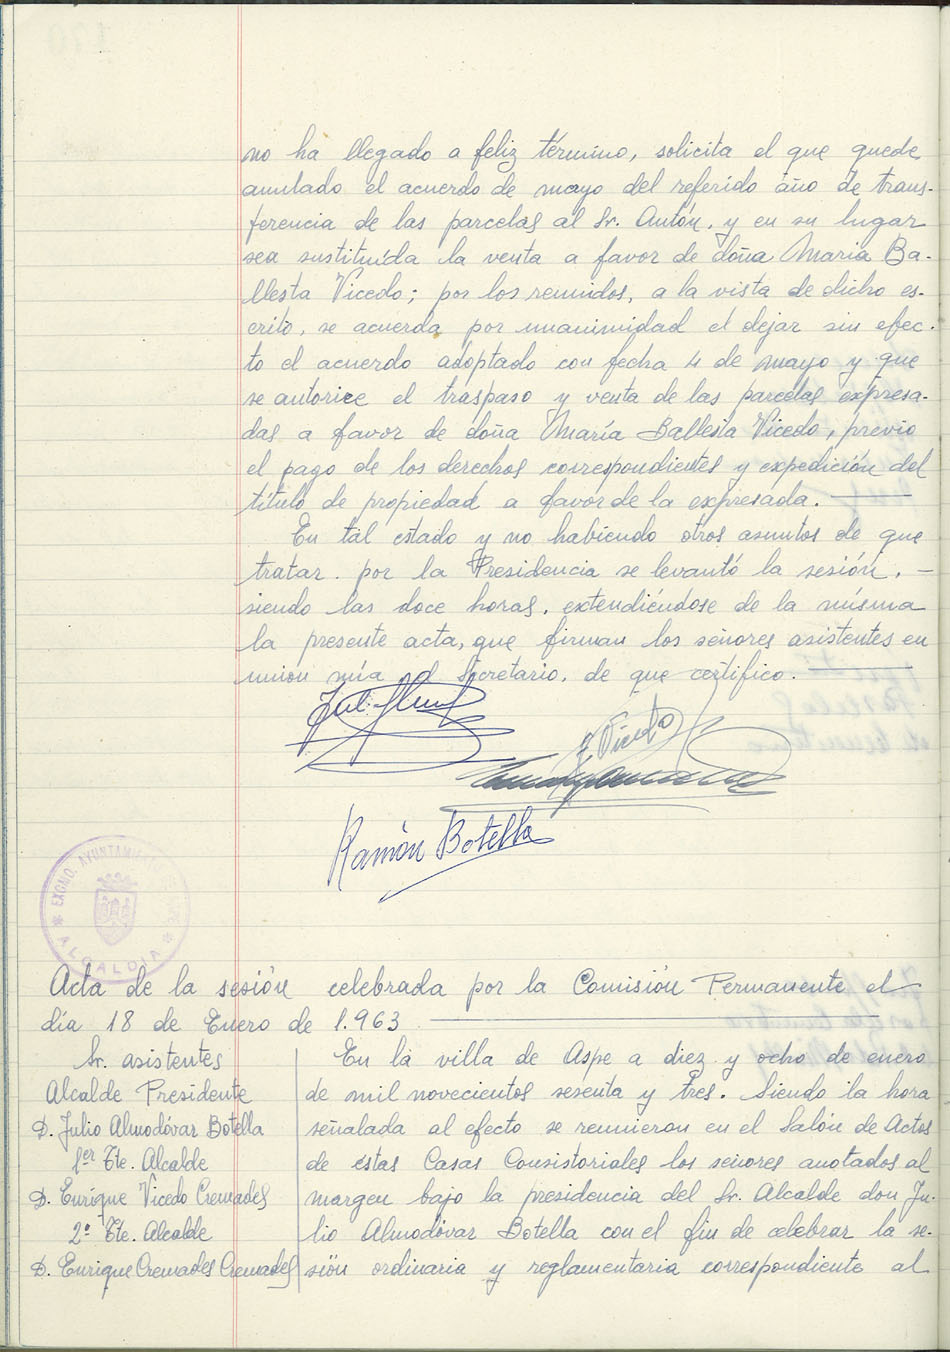 no ha llegado a feliz término, solicita el que quede
anulado el acuerdo de mayo del referido año de trans-
ferencia de las parcelas al Sr. Antón, y en su lugar
sea sustituída la venta a favor de doña Maria Ba-
llesta Vicedo; por los reunidos, a la vista de dicho es-
crito, se acuerda por unanimidad el dejar sin efec-
to el acuerdo adoptado con fecha 4 de mayo y que
se autorice el traspaso y venta de las parcelas expresa-
das a favor de doña María Ballesta Vicedo, previo
el pago de los derechos correspondientes y expedición del
título de propiedad a favor de la expresada.
En tal estado y no habiendo otros asuntos de que
tratar. por la Presidencia se levantó la sesión, –
siendo las doce horas, extendiéndose de la misma
la presente acta, que firman los señores asistentes en
union mía el Secretario, de que certifico.
E Vicedo
Ramón Botella
EXCMO. AYUNTAMIENTO
ALCALDIA
Acta de la sesión celebrada por la Comisión Permanente el
día 18 de Enero de 1.963
Sr. asistentes
Alcalde Presidente
D. Julio Almodóvar Botella
1er Tte. Alcalde
D. Enrique Vicedo Cremades
2º Tte. Alcalde
D. Enrique Cremades Cremades
En la villa de Aspe a diez y ocho de enero
de mil novecientos sesenta y tres. Siendo la hora
señalada al efecto se reunieron en el Salón de Actos
de estas Casas Consistoriales los señores anotados al
margen bajo la presidencia del Sr. Alcalde don Ju-
lio Almodóvar Botella con el fin de celebrar la se-
sión ordinaria y reglamentaria correspondiente al